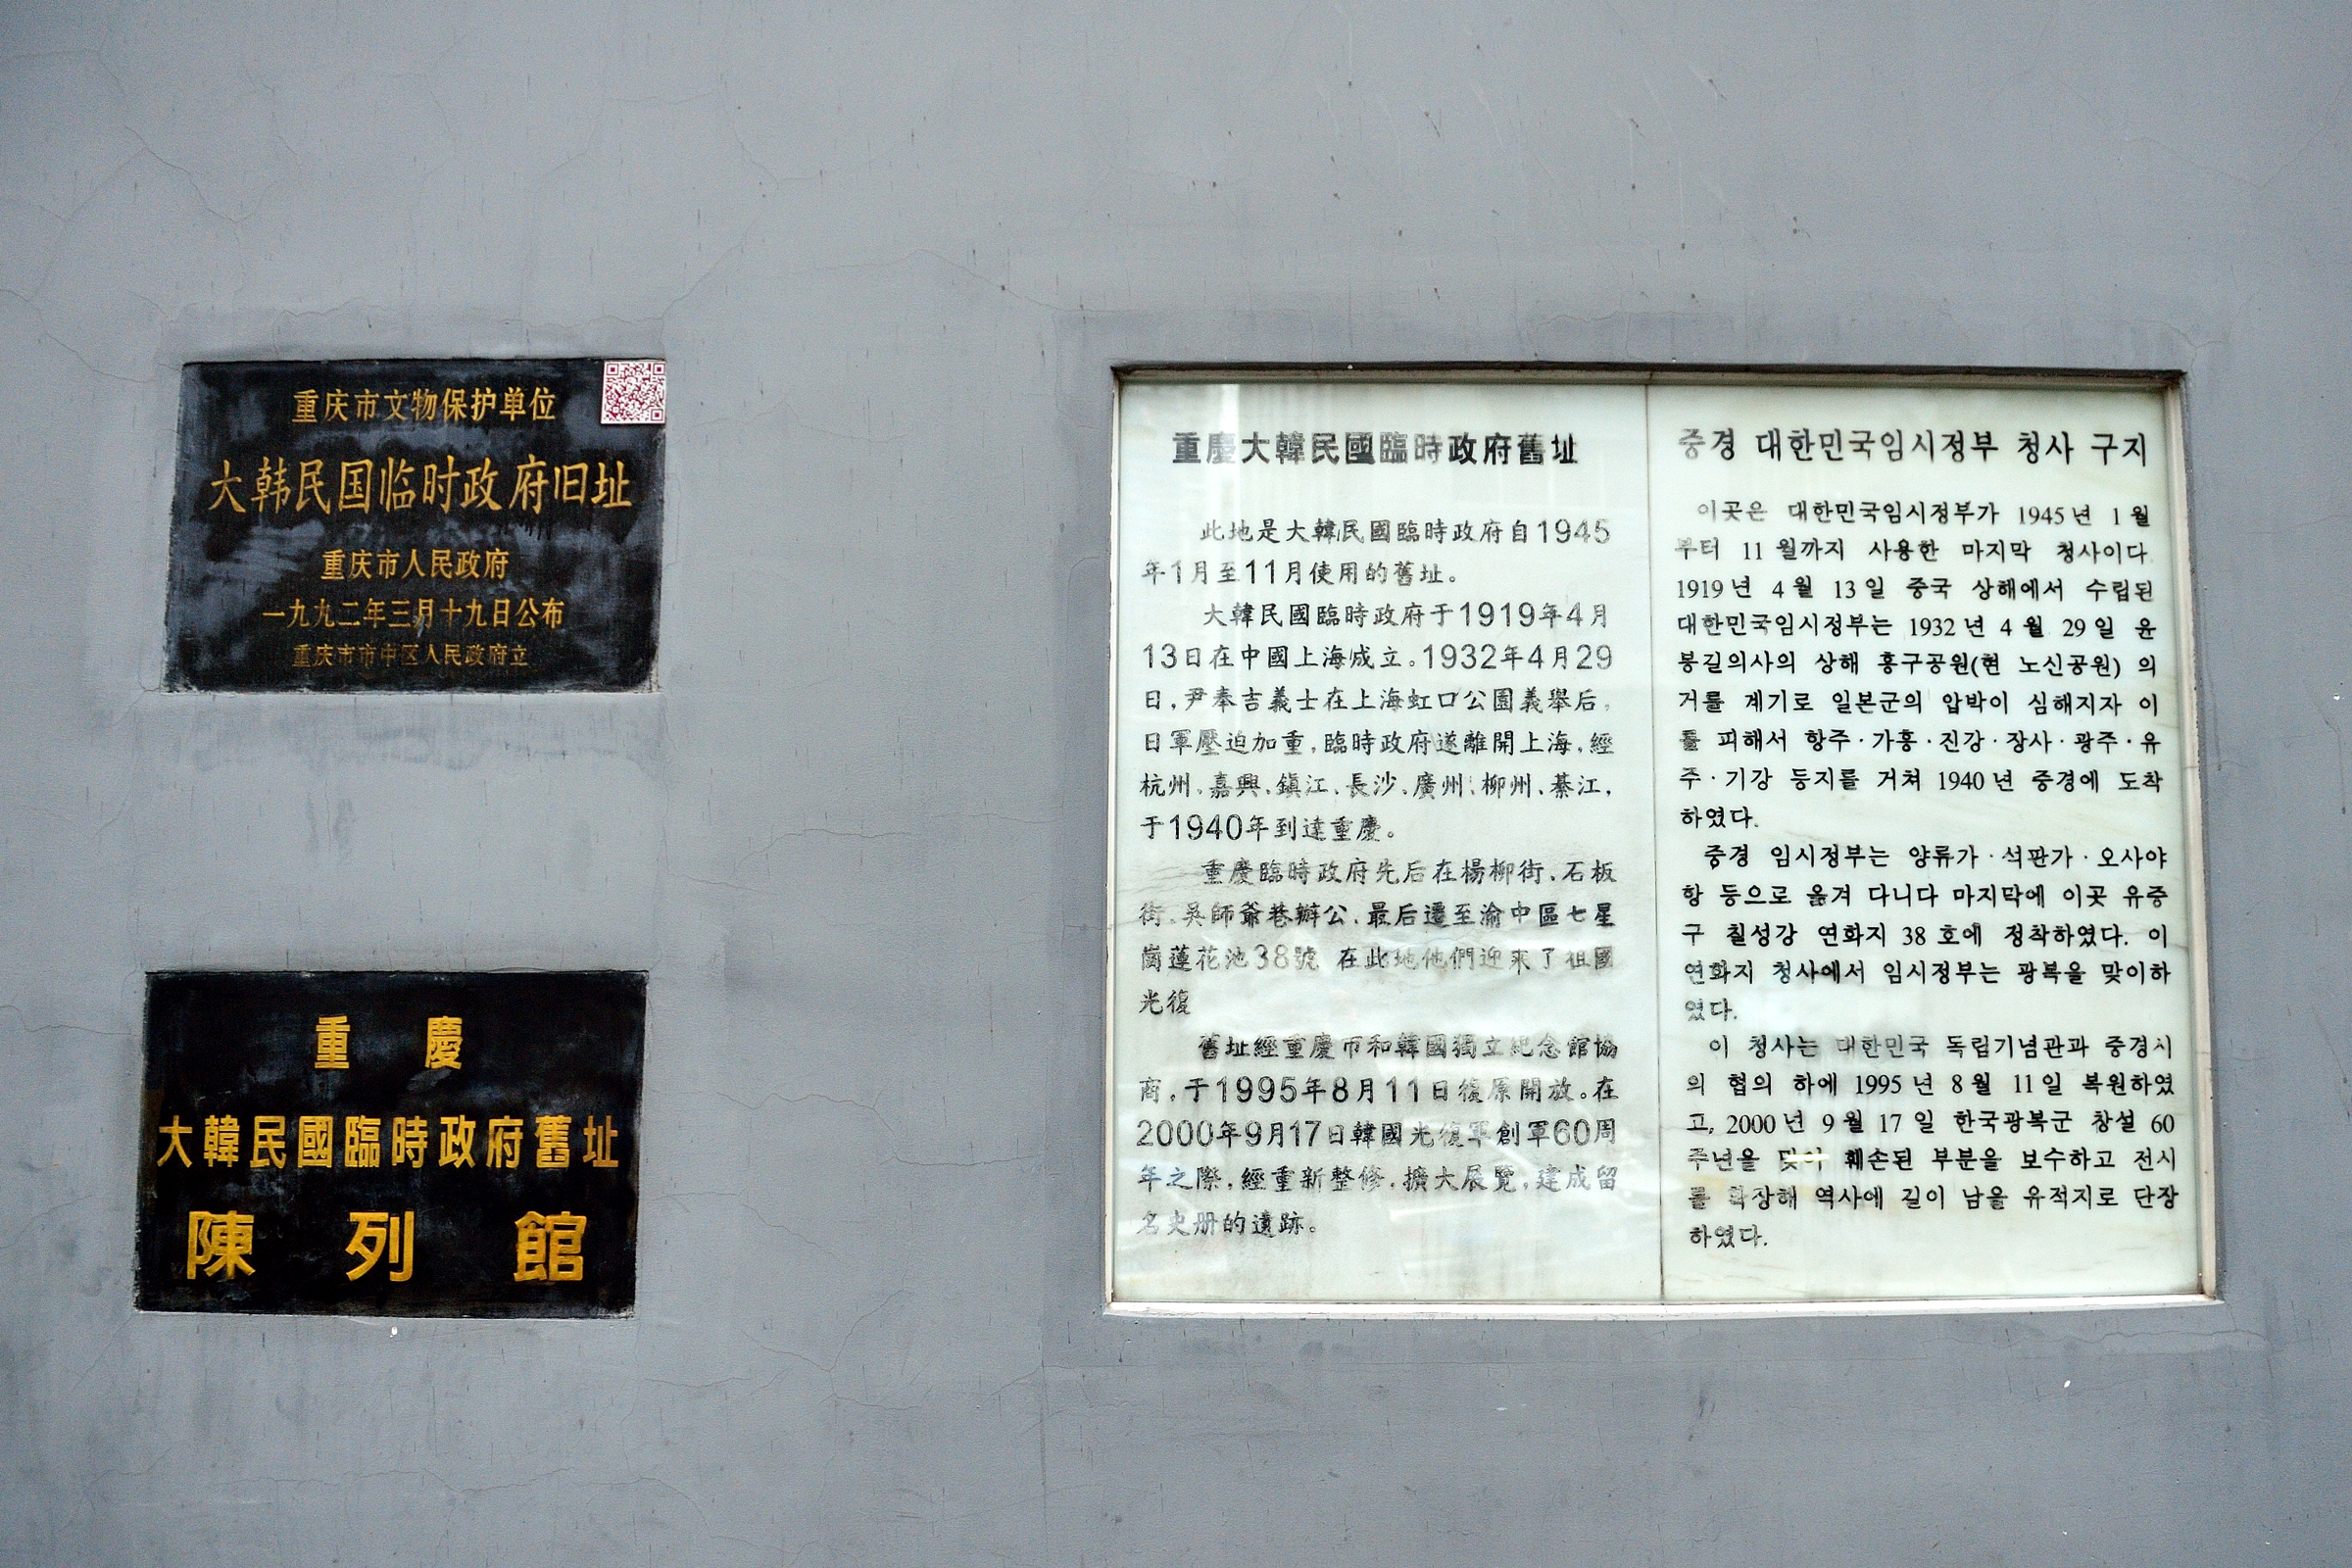 重庆市文物保护单位
大韩民国临时政府旧址
重庆市人民政府
一九九二年三月十九日公布
重庆市市中区人民政府立
重慶
大韓民國臨時政府舊址
陳列館
重慶大韓民國臨時政府舊址
此地是大韓民國臨時政府自1945
年1月至11月使用的舊址。
大韓民國臨時政府于1919年4月
13日在中國上海成立。1932年4月29
日,尹奉吉義士在上海虹口公園義舉后,
日軍壓迫加重,臨時政府遂離開上海,經
杭州、嘉興、鎮江、長沙、廣州、柳州、綦江,
于1940年到達重慶。
重慶臨時政府先后在楊柳街、石板
街、吳師爺巷辦公,最后遷至渝中區七星
崗蓮花池38號 在此地他們迎來了祖國
光復
舊址經重慶市和韓國獨立紀念館協
商,于1995年8月11日復原開放。在
2000年9月17日韓國光復軍創軍60周
年之際,經重新整修,擴大展覽,建成留
名史册的遺跡。
중경 대한민국임시정부 청사 구지
이곳은 대한민국임시정부가 1945년 1월
부터 11월까지 사용한 마지막 청사이다.
1919년 4월 13일 중국 상해에서 수립된
대한민국임시정부는 1932년 4월 29일 윤
봉길의사의 상해 홍구공원(현 노신공원) 의
거를 계기로 일본군의 압박이 심해지자 이
를 피해서 항주·가흥·진강·장사·광주·유
주·기강 등지를 거쳐 1940년 중경에 도착
하였다.
중경 임시정부는 양류가·석판가·오사야
항 등으로 옮겨 다니다 마지막에 이곳 유중
구 칠성강 연화지 38호에 정착하였다. 이
연화지 청사에서 임시정부는 광복을 맞이하
였다.
이 청사는 대한민국 독립기념관과 중경시
의 협의 하에 1995년 8월 11일 복원하였
고, 2000년 9월 17일 한국광복군 창설 60
주년을 맞이 훼손된 부분을 보수하고 전시
를 확장해 역사에 길이 남을 유적지로 단장
하였다.